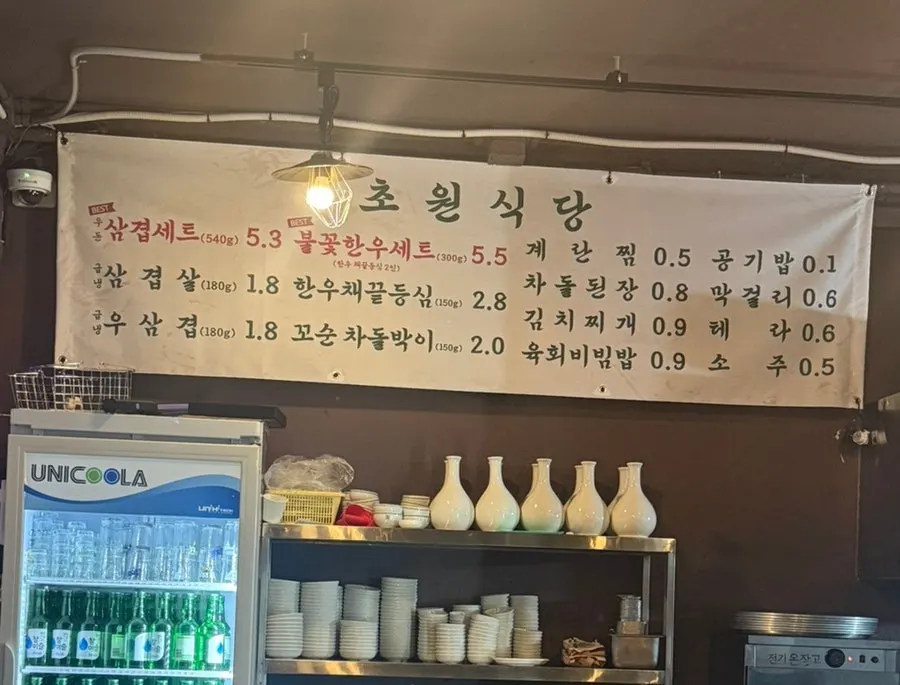 초원식당
BEST
우돈 삼겹세트(540g) 5.3
급냉 삼겹살(180g) 1.8
급냉 우삼겹(180g) 1.8
BEST
불꽃한우세트(300g) 5.5
(한우 채끝등심 2인)
한우채끝등심(150g) 2.8
꼬순차돌박이(150g) 2.0
계란찜 0.5
차돌된장 0.8
김치찌개 0.9
육회비빔밥 0.9
공기밥 0.1
막걸리 0.6
테라 0.6
소주 0.5
UNICOOLA
전기온장고